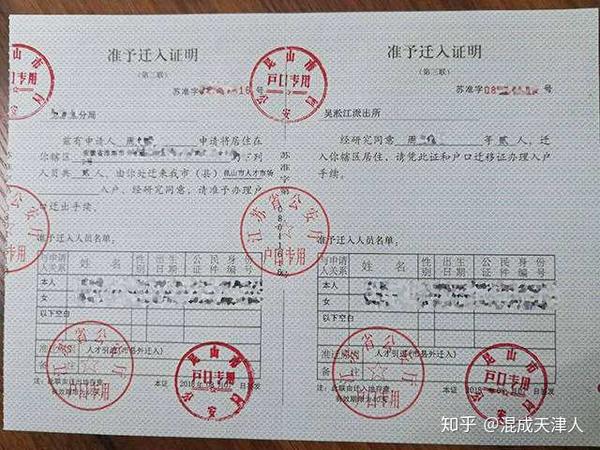 准予迁入证明
（第二联）
苏准字 18 号
分局
兹有申请人 周 申请将居住在
你辖区 下列
人员共 贰 人，由你处迁来我市（县）昆山市人才市场
入户，经研究同意，请准予办理户
口迁出手续。
准予迁入人员名单：
与申请人关系 姓名 性别 出生日期 公民身份证件编号
本人
女
以下空白
准迁 人才引进(市县外迁入)
注：此联由迁出地存查 本证 2018年 日签发
有效期限为40天
苏准字第
准予迁入证明
（第三联）
苏准字08 号
吴淞江派出所
经研究同意 周 等 贰 人，迁
入你辖区居住，请凭此证和户口迁移证办理入户
手续。
准予迁入人员名单：
与申请人关系 姓名 性别 出生日期 公民身份证件编号
本人
女
以下空白
人才引进(市县外迁入)
注：此联由迁入地存查 本证 2018 日签发
有效期限为40天
昆山市公安局
户口专用
江苏省公安厅
户口专用
昆山市公安局
户口专用
江苏省公安厅
户口专用
昆山市公安局
户口专用
江苏省公安厅
户口专用
昆山市公安局
户口专用
知乎 @混成天津人